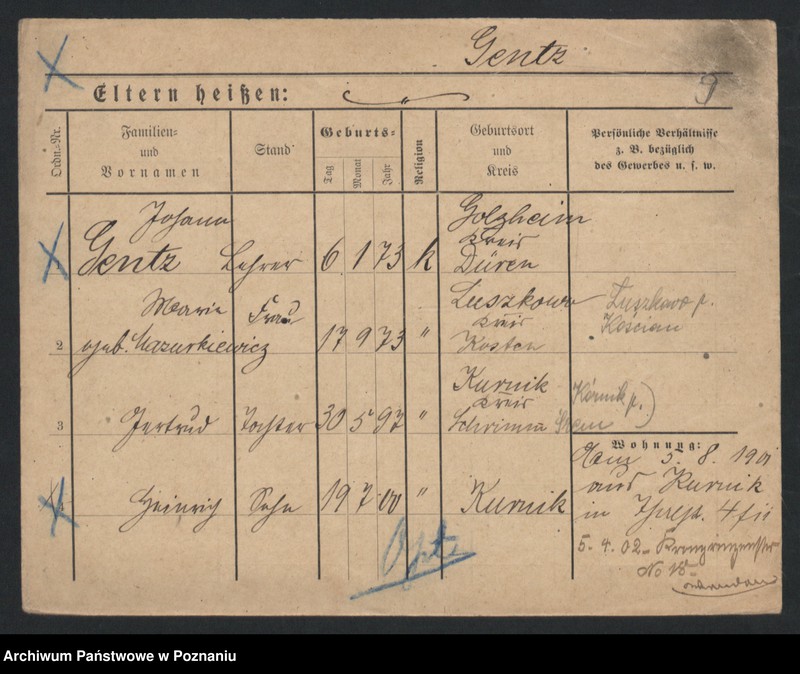 Gentz
Eltern heißen:
Ordn.-Nr.
Familien-
und
Vornamen
Stand
Geburts-
Tag
Monat
Jahr
Religion
Geburtsort
und
Kreis
Persönliche Verhältnisse
z. B. bezüglich
des Gewerbes u. s. w.
Johann
Gentz Lehrer 6 1 73 k
Golzheim
Kreis
Düren
2
Maria Frau
geb. Mazurkiewicz 17 9 73 "
Luszkowo
Kreis
Kosten
Luszkowo p.
Kościan
3
Gertrud Tochter 30 5 97 "
Kurnik
Kreis
Schrimm
Kórnik p.
Śrem
Heinrich Sohn 19 7 00 " Kurnik
Wohnung:
5. 8. 1901
aus Kurnik
in
5. 4. 02
No